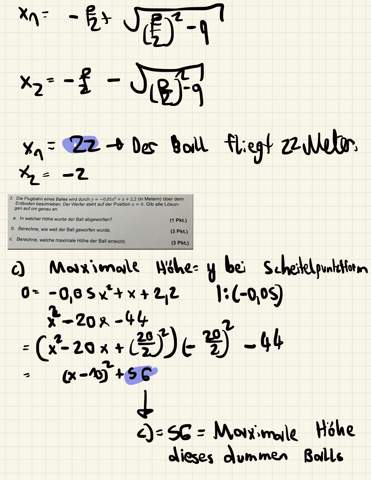 x₁ = - p/2 + √((p/2)² - q)
x₂ = - p/2 - √((p/2)² - q)
x₁ = 22 → Der Ball fliegt 22 Meter.
x₂ = -2
2. Die Flugbahn eines Balles wird durch y = −0,05x² + x + 2,2 (in Metern) über dem
Erdboden beschrieben. Der Werfer steht auf der Position x = 0. Gib alle Lösun-
gen auf cm genau an.
a. In welcher Höhe wurde der Ball abgeworfen? (1 Pkt.)
b. Berechne, wie weit der Ball geworfen wurde. (3 Pkt.)
c. Berechne, welche maximale Höhe der Ball erreicht. (3 Pkt.)
c) Maximale Höhe = y bei Scheitelpunktform
0 = -0,05x² + x + 2,2 |:(-0,05)
x² - 20x - 44
= (x² - 20x + (20/2)²) (- 20/2)² - 44
= (x - 10)² + 56
↓
c) = 56 = Maximale Höhe
dieses dummen Balls